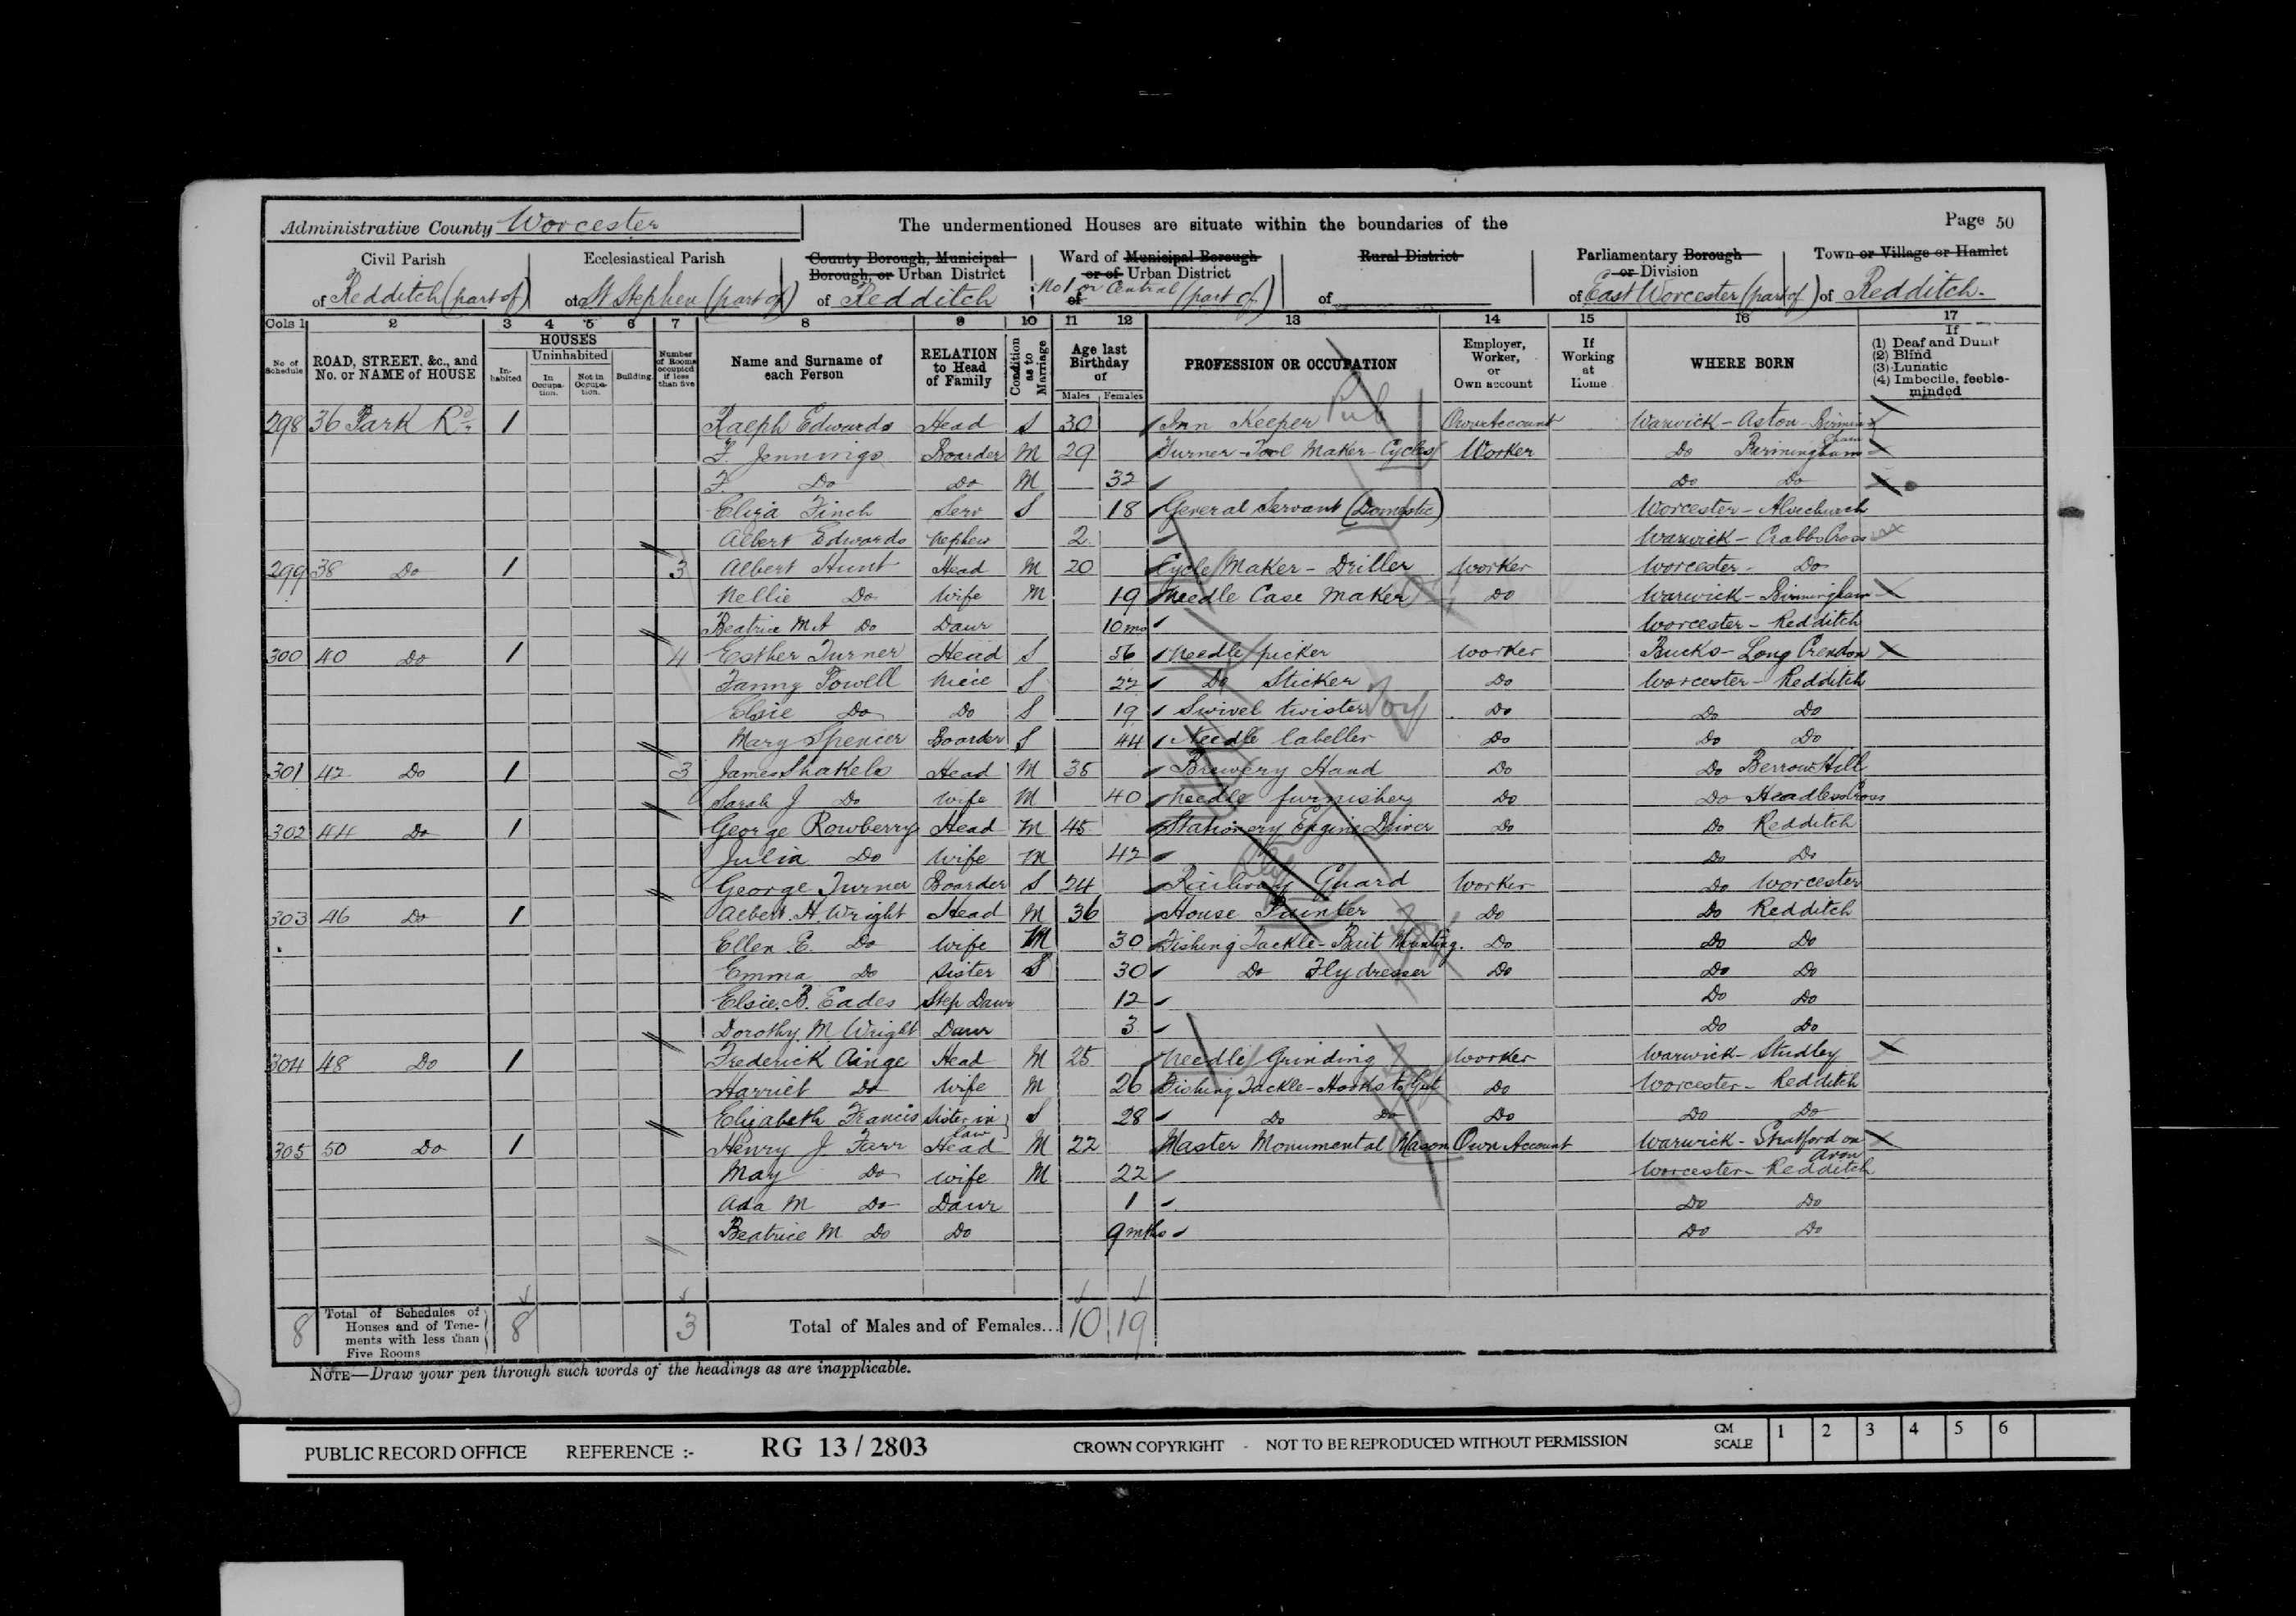 Administrative County Worcester
The undermentioned Houses are situate within the boundaries of the
Page 50
Civil Parish of Redditch (part of)
Ecclesiastical Parish of St Stephen (part of)
County Borough, Municipal Borough, or Urban District of Redditch
Ward of Municipal Borough or of Urban District of No 1 or Central (part of)
Rural District of
Parliamentary Borough or Division of East Worcester (part of)
Town or Village or Hamlet of Redditch.
Cols 1 2 3 4 5 6 7 8 9 10 11 12 13 14 15 16 17
No of Schedule
ROAD, STREET, &c., and No. or NAME of HOUSE
HOUSES
Inhabited
Uninhabited
In Occupation.
Not in Occupation.
Building
Number of Rooms occupied if less than five
Name and Surname of each Person
RELATION to Head of Family
Condition as to Marriage
Age last Birthday of
Males Females
PROFESSION OR OCCUPATION
Employer, Worker, or Own account
If Working at Home
WHERE BORN
If
(1) Deaf and Dumb
(2) Blind
(3) Lunatic
(4) Imbecile, feeble-minded
298 36 Park Rd. 1 Ralph Edwards Head S 30 Inn Keeper Pub Own Account Warwick - Aston Birmingham
F. Jennings Boarder M 29 Turner - Tool Maker - Cycles Worker Do Birmingham
F. Do Do M 32 Do Do
Eliza Finch Serv S 18 General Servant (Domestic) Worcester - Alvechurch
Albert Edwards Nephew 2 Warwick - Crabbs Cross
299 38 Do 1 3 Albert Hunt Head M 20 Cycle Maker - Driller Worker Worcester - Do
Nellie Do Wife M 19 Needle Case Maker Do Warwick - Birmingham
Beatrice M A Do Daur 10 mo Worcester - Redditch
300 40 Do 1 4 Esther Turner Head S 56 Needle picker Worker Bucks - Long Crendon
Fanny Powell Niece S 22 Do Sticker Do Worcester - Redditch
Elsie Do Do S 19 Swivel twister Do Do Do
Mary Spencer Boarder S 44 Needle labeller Do Do Do
301 42 Do 1 3 James Shakels Head M 38 Brewery Hand Do Do Berrow Hill
Sarah J Do Wife M 40 Needle furnisher Do Do Headless Cross
302 44 Do 1 George Rowberry Head M 45 Stationery Engine Driver Do Do Redditch
Julia Do Wife M 42 Do Do
George Turner Boarder S 24 Railway Guard Worker Do Worcester
303 46 Do 1 Albert H. Wright Head M 36 House Painter Do Do Redditch
Ellen E. Do Wife M 30 Fishing Tackle - Bait Munting. Do Do Do
Emma Do Sister S 30 Do Flydresser Do Do Do
Elsie. B. Eades Step Daur 12 Do Do
Dorothy. M Wright Daur 3 Do Do
304 48 Do 1 Frederick Ainge Head M 25 Needle Grinding Worker Warwick - Studley
Harriet Do Wife M 26 Fishing Tackle - Hooks to Gut Do Worcester - Redditch
Elizabeth Francis Sister in law S 28 Do Do Do Do Do
305 50 Do 1 Henry J Farr Head M 22 Master Monumental Mason Own Account Warwick - Stratford on Avon
May Do Wife M 22 Worcester - Redditch
Ada M Do Daur 1 Do Do
Beatrice M Do Do 9 mths Do Do
8 Total of Schedules of Houses and of Tenements with less than Five Rooms 8 3 Total of Males and of Females... 10 19
NOTE—Draw your pen through such words of the headings as are inapplicable.
PUBLIC RECORD OFFICE REFERENCE :- RG 13/2803 CROWN COPYRIGHT - NOT TO BE REPRODUCED WITHOUT PERMISSION CM SCALE 1 2 3 4 5 6